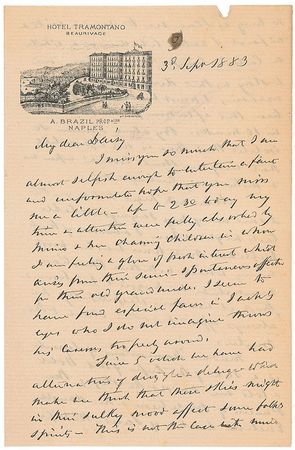 HÔTEL TRAMONTANO
BEAURIVAGE
A. BRAZIL PROPRIETOR
NAPLES
3d Sept 1883
My dear Daisy
I miss you so much that I am
almost selfish enough to entertain a faint
and unfortunate hope that you miss
me a little — up to 2.30 today my
time & attention were fully absorbed by
Minna & her charming children in whom
I am feeling a glow of fresh interest which
arises from their semi-spontaneous affection
for their old granduncle. I seem to
have found especial favor in Jack's
eyes who I do not imagine throws
his caresses broadly around.
Since 5 which we have had
alternations of drizzle & deluge
make me think that these skies might
in their sulky mood affect some folks
spirits — This is not the case with mine